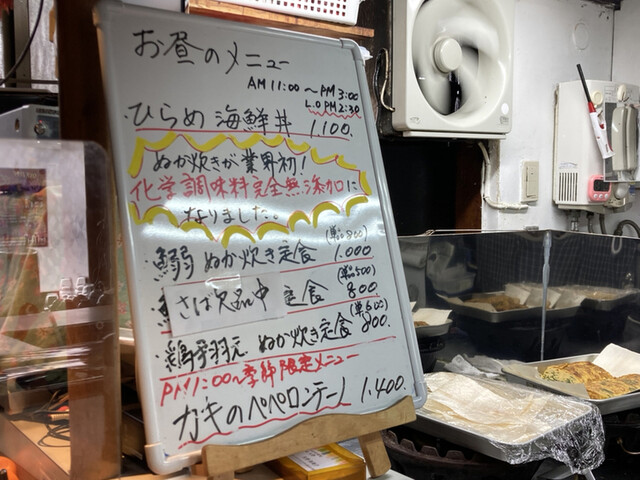 お昼のメニュー
AM 11:00 〜 PM 3:00
L.O PM 2:30
・ひらめ 海鮮丼 1,100.
ぬか炊きが業界初!
化学調味料完全無添加に
なりました。
・鰯 ぬか炊き定食 1.000
さば欠品中 定食 800
・鶏手羽元 ぬか炊き定食 800.
PM 1:00〜季節限定メニュー
カキのペペロンチーノ 1,400.